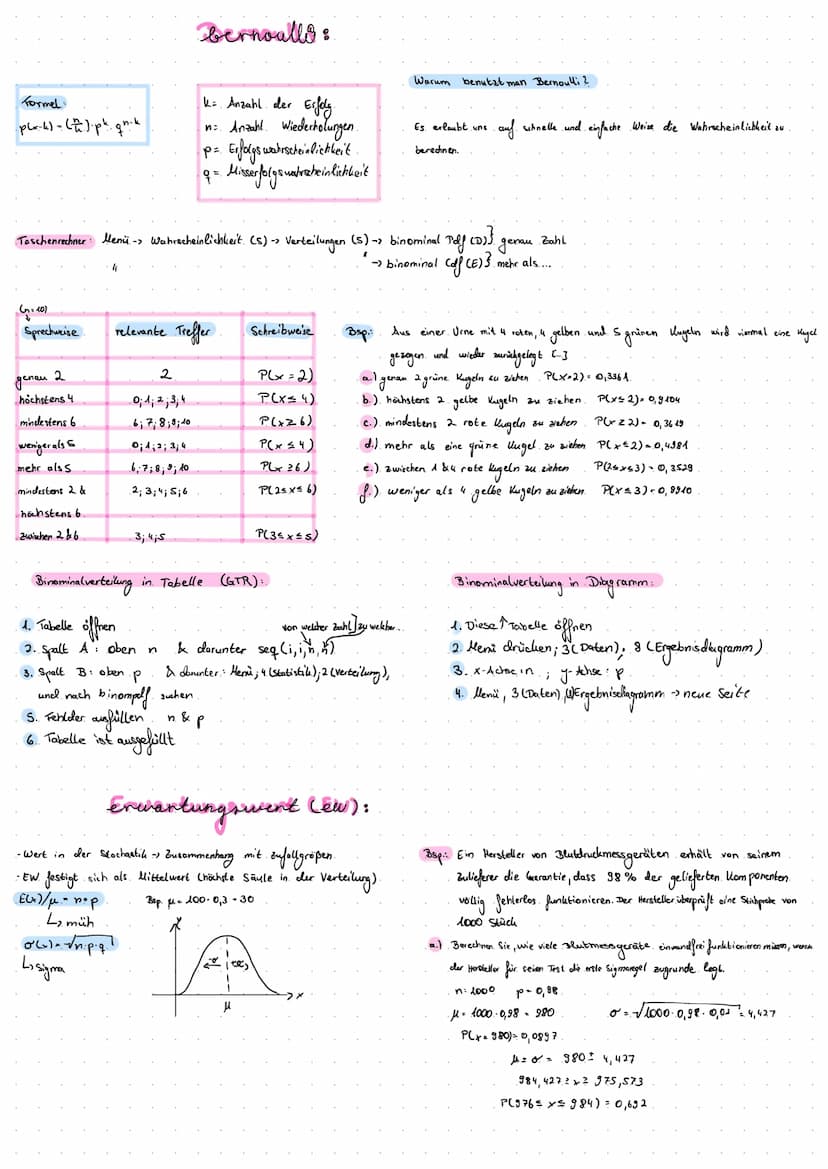 Bernoulli:
Formel:
p(x=k) = (n/k) · p^k · q^n-k
k = Anzahl der Erfolg
n = Anzahl Wiederholungen
p = Erfolgswahrscheinlichkeit
q = Misserfolgswahrscheinlichkeit
Warum benutzt man Bernoulli?
Es erlaubt uns auf schnelle und einfache Weise die Wahrscheinlichkeit zu
berechnen.
Taschenrechner: Menü -> Wahrscheinlichkeit (5) -> Verteilungen (5) -> binominal Pdf (D)} genau Zahl
" " -> binominal Cdf (E)} mehr als...
(n=10)
Sprechweise relevante Treffer Schreibweise
genau 2 2 P(x = 2)
höchstens 4 0;1;2;3;4 P(x ≤ 4)
mindestens 6 6;7;8;9;10 P(x ≥ 6)
weniger als 5 0;1;2;3;4 P(x ≤ 4)
mehr als 5 6;7;8;9;10 P(x ≥ 6)
mindestens 2 & 2;3;4;5;6 P(2 ≤ x ≤ 6)
höchstens 6
zwischen 2 & 6 3;4;5 P(3 ≤ x ≤ 5)
Bsp.: Aus einer Urne mit 4 roten, 4 gelben und 5 grünen Kugeln wird viermal eine Kugel
gezogen und wieder zurückgelegt [-]
a.) genau 2 grüne Kugeln zu ziehen P(x=2) = 0,3361
b.) höchstens 2 gelbe Kugeln zu ziehen P(x≤2) = 0,9104
c.) mindestens 2 rote Kugeln zu ziehen P(x≥2) = 0,3619
d.) mehr als eine grüne Kugel zu ziehen P(x≥2) = 0,4981
e.) zwischen 1 & 4 rote Kugeln zu ziehen P(2≤x≤3) = 0,3529
f.) weniger als 4 gelbe Kugeln zu ziehen P(x≤3) = 0,9910
Binominalverteilung in Tabelle (GTR):
1. Tabelle öffnen
von welcher Zahl] zu welcher..
2. Spalt A: oben n & darunter seq(i,i,n,k)
3. Spalt B: oben p & darunter: Menü; 4 (Statistik); 2 (Verteilung),
und nach binompdf suchen
5. Fehlder ausfüllen n & p
6. Tabelle ist ausgefüllt
Binominalverteilung in Diagramm:
1. Diese ↑ Tabelle öffnen
2. Menü drücken; 3 (Daten); 8 (Ergebnisdiagramm)
3. x-Achse: n ; y-Achse: p
4. Menü, 3 (Daten), (8) Ergebnisdiagramm -> neue Seite
Erwartungswert (EW):
- Wert in der Stochastik -> Zusammenhang mit Zufallgrößen
- EW festigt sich als Mittelwert (höchste Säule in der Verteilung)
E(x)/μ = n · p
Bsp. μ = 100 · 0,3 = 30
↳ müh
σ(x) = √n·p·q
↳ Sigma
x
μ
Bsp.: Ein Hersteller von Blutdruckmessgeräten erhält von seinem
Zulieferer die Garantie, dass 98% der gelieferten Komponenten
völlig fehlerlos funktionieren. Der Hersteller überprüft eine Stichprobe von
1000 Stück
a.) Berechnen Sie, wie viele Blutmessgeräte einwandfrei funktionieren müssen, wenn
der Hersteller für seinen Test die erste Sigmaregel zugrunde legt.
n = 1000 p = 0,98
μ = 1000 · 0,98 = 980 σ = √1000 · 0,98 · 0,02 = 4,427
P(x = 980) = 0,0897
μ ± σ = 980 ± 4,427
984,427 ≥ x ≥ 975,573
P(976 ≤ x ≤ 984) = 0,692